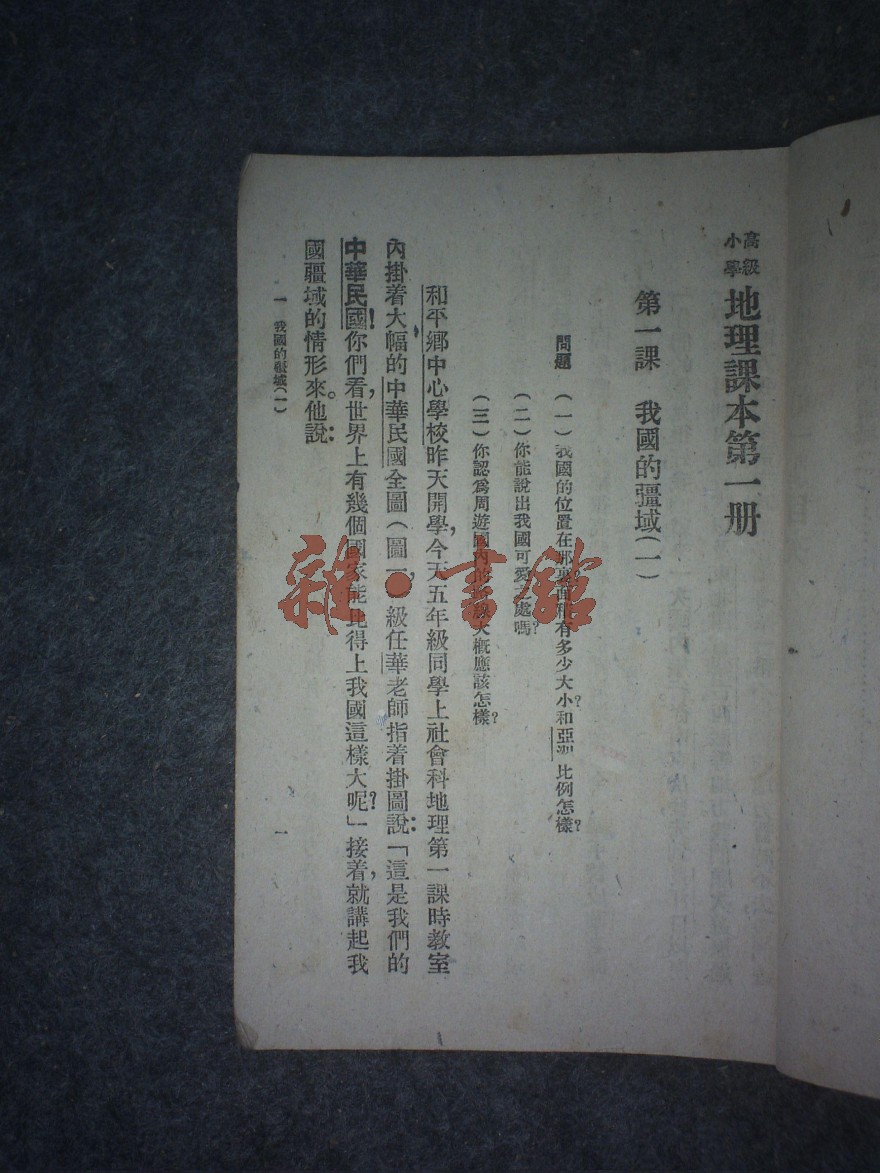 高級小學 地理課本第一册
第一課 我國的疆域(一)
問題 (一)我國的位置在那裏?面積有多少大小?和亞洲比例怎樣?
(二)你能說出我國可愛之處嗎?
(三)你認爲周遊國內的路線大概應該怎樣?
和平鄉中心學校昨天開學,今天五年級同學上社會科地理第一課時,教室
內掛着大幅的中華民國全圖(圖一),級任華老師指着掛圖說:「這是我們的
中華民國!你們看,世界上有幾個國家能比得上我國這樣大呢?」接着,就講起我
國疆域的情形來。他說:
一 我國的疆域(一)
一
雜·書館